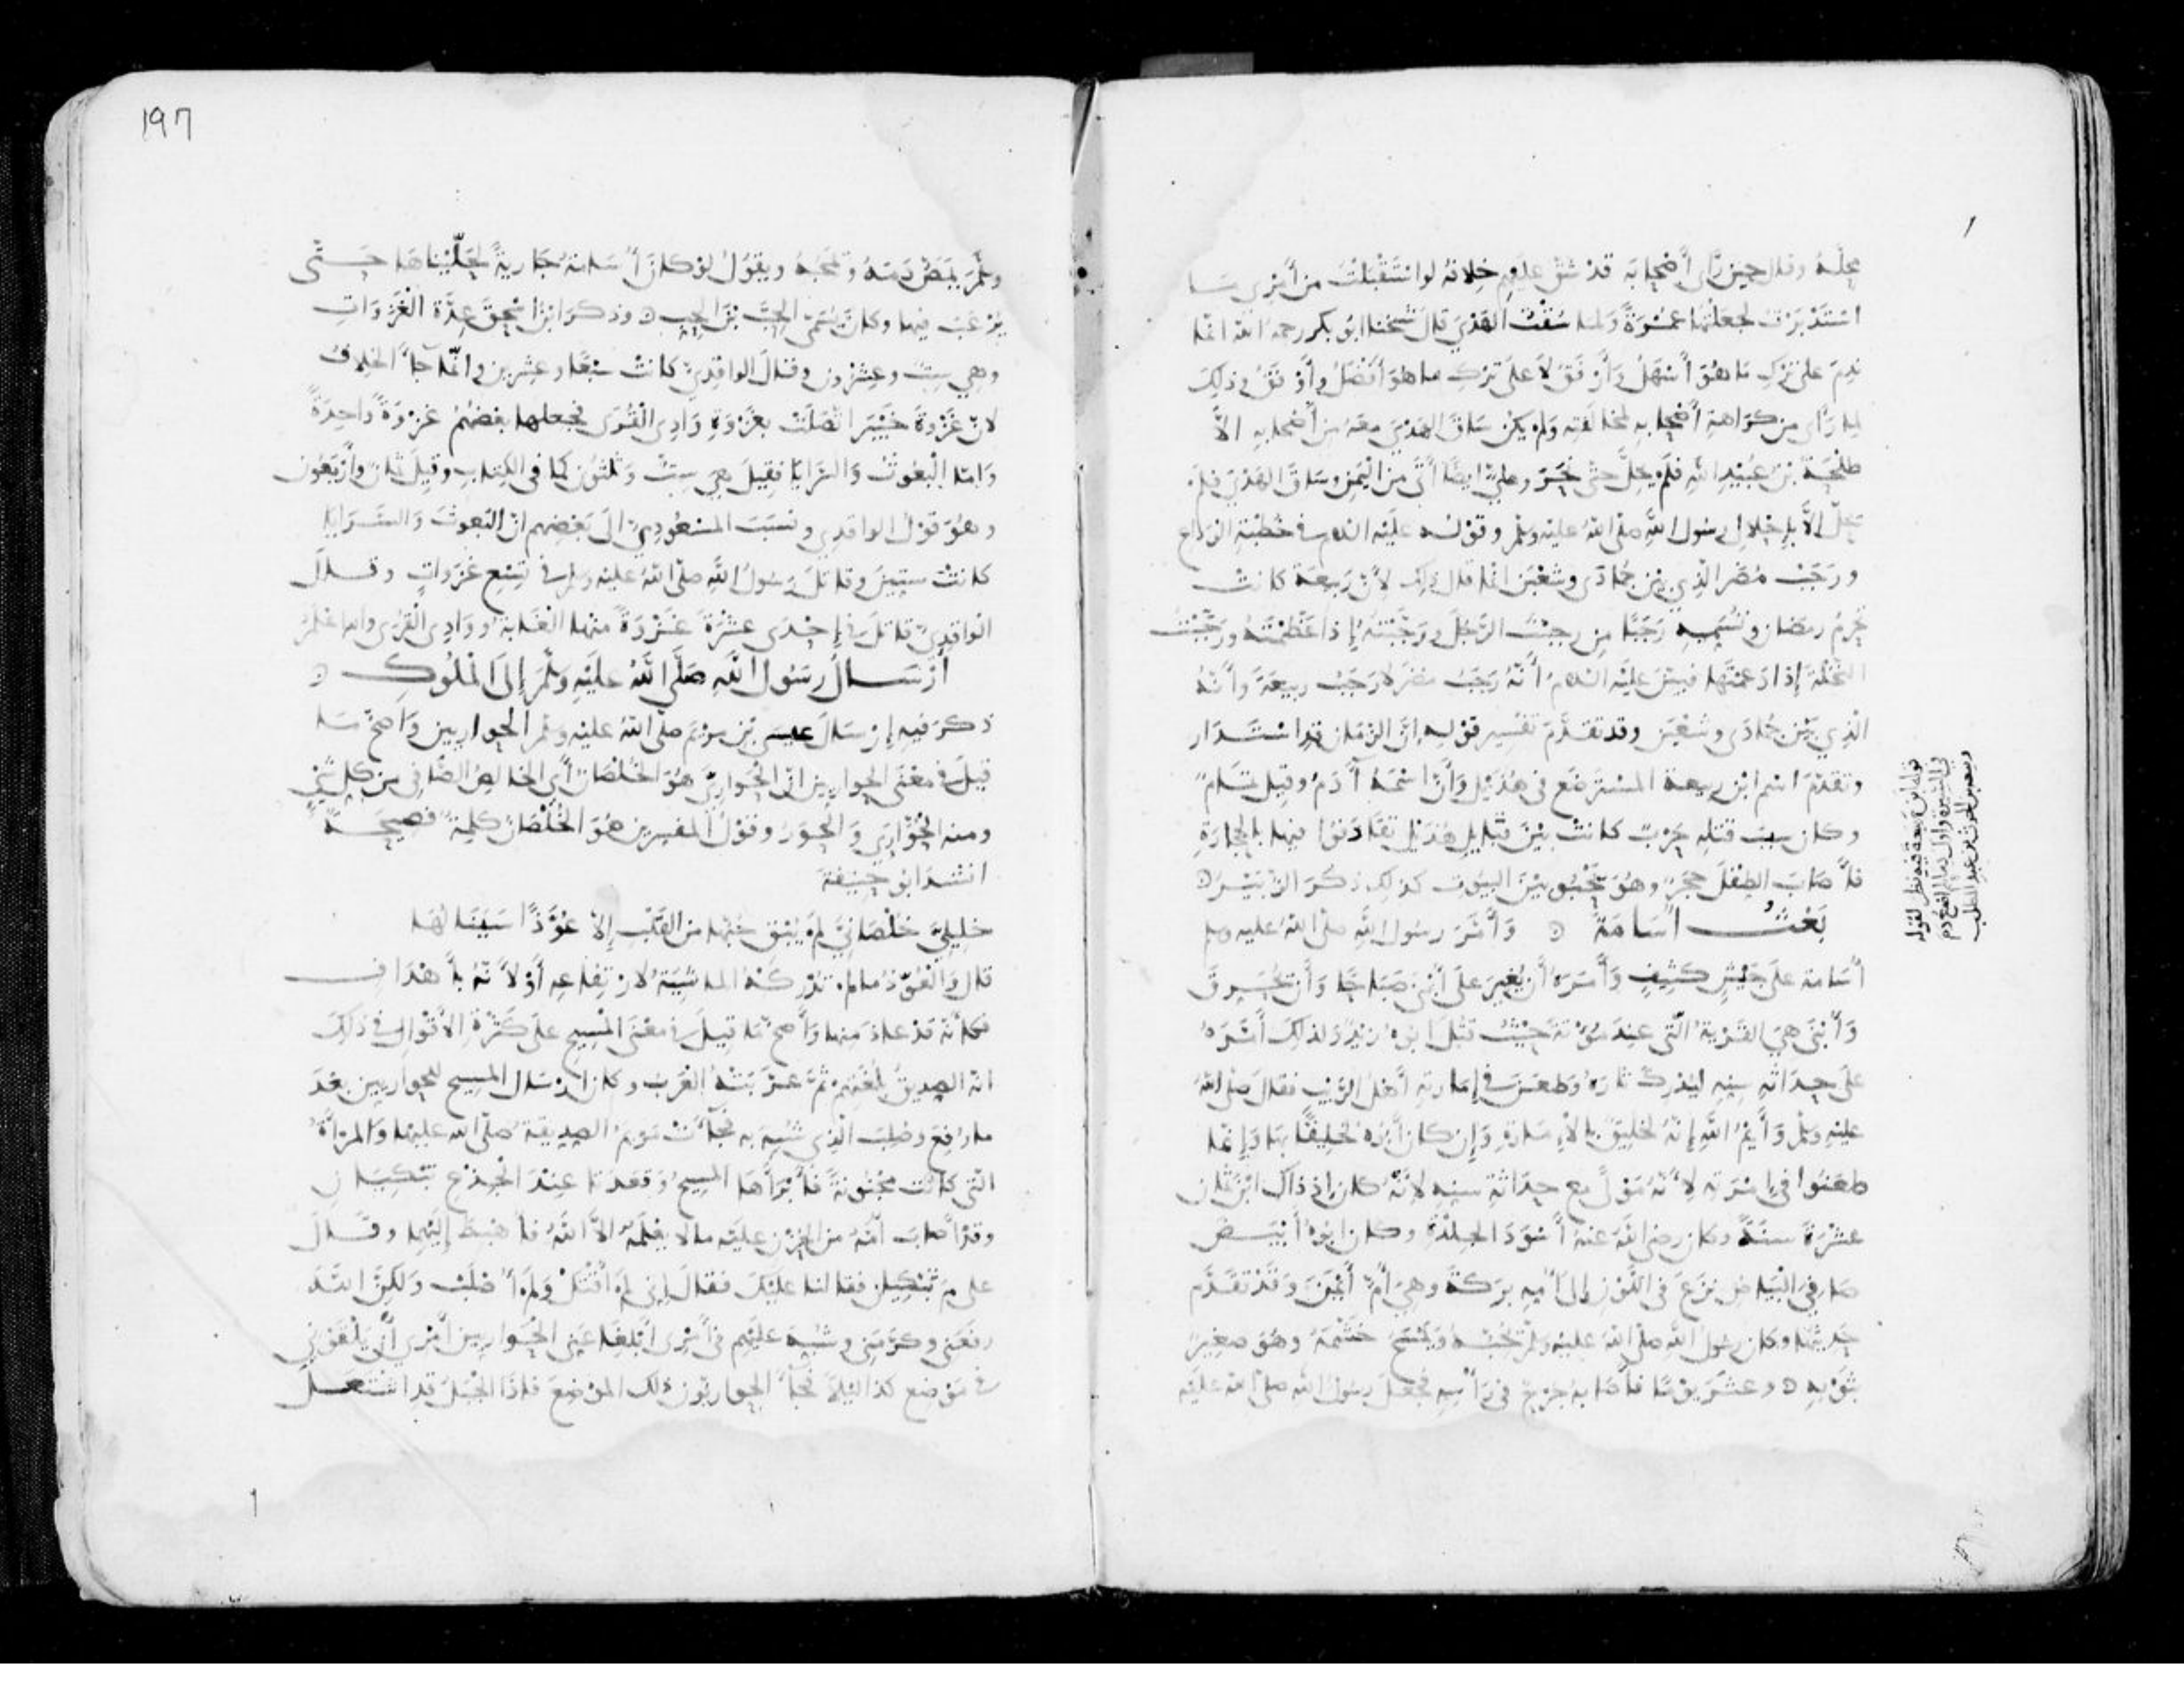 محله وقال حين رأى أصحابه قد شق عليهم خلافه لو استقبلت من أمري ما
استدبرت لجعلتها عمرة ولما سقت الهدي قال شيخنا ابو بكر رحمه الله انما
ندم على ترك ما هو أسهل وأرفق لا على ترك ما هو أفضل وأوفق وذلك
لما رأى من كراهة أصحابه لمخالفته ولم يكن ساق الهدي معه من أصحابه الا
طلحة بن عبيد الله فلم يحل حتى نحر وعلي ايضا أتى من اليمن وساق الهدي فلم
يحل الا بإحلال رسول الله صلى الله عليه وسلم وقوله عليه السلام في خطبة الوداع
ورجب مضر الذي بين جمادى وشعبن انما قال ذلك لأن ربيعة كانت
تحرم رمضان وتسميه رجبا من رجبت الرجل ورجبته إذا عظمته ورجبت
النخلة إذا دعمتها فبين عليه السلام أنه رجب مضر لا رجب ربيعة وأنه
الذي بين جمادى وشعبن وقد تقدم تفسير قوله ان الزمان قد استدار
وتقدم اسم ابن ربيعة المسترضع في هذيل وأن اسمه آدم وقيل تمام
وكان سبب قتله حرب كانت بين قبايل هذيل تقاذفوا فيها بالحجارة
فأصاب الطفل حجر وهو يحبو بين البيوت كذلك ذكر الزبير
بعث أسامة وأمر رسول الله صلى الله عليه وسلم
أسامة على جيش كثيف وأمره أن يغير على أبنى صباحا وأن يحرق
وأبنى هي القرية التي عند مؤتة حيث قتل ابوه زيد ولذلك أمره
على حداثة سنه ليدرك ثاره وطعن في إمارته أهل الريب فقال صلى الله
عليه وسلم وأيم الله إنه لخليق بالإمارة وإن كان أبوه لخليقا بها وإنما
طعنوا في امرته لأنه مولى مع حداثة سنه لأنه كان إذ ذاك ابن ثمان
عشرة سنة وكان رضي الله عنه أسود الجلدة وكان ابوه أبيض
صافي البياض نزع في اللون إلى أمه بركة وهي أم أيمن وقد تقدم
حديثها وكان رسول الله صلى الله عليه وسلم يحبه ويمسح خشمه وهو صغير
بثوبه وعثر يوما فأصابه جرح في رأسه فجعل رسول الله صلى الله عليه
قوله ابن ربيعة فيه نظر لقوله
في السيرة وأول دمائكم أضع دم
ربيعة بن الحرث بن عبد المطلب
197
وسلم يمص دمه ويمجه ويقول لو كان أسامة جارية لحليناها حتى
يرغب فيها وكان يسمى الحب بن الحب وذكر ابن اسحق عدة الغزوات
وهي ست وعشرون وقال الواقدي كانت سبعا وعشرين وانما جاء الخلاف
لأن غزوة خيبر اتصلت بغزوة وادي القرى فجعلها بعضهم غزوة واحدة
واما البعوث والسرايا فقيل هي ست وثلثون كما في الكتاب وقيل ثمان وأربعون
وهو قول الواقدي ونسب المسعودي الى بعضهم ان البعوث والسرايا
كانت ستين وقاتل رسول الله صلى الله عليه وسلم في تسع غزوات وقال
الواقدي قاتل في إحدى عشرة غزوة منها الغابة ووادي القرى والله اعلم
أرسال رسول الله صلى الله عليه وسلم إلى الملوك
ذكر فيه إرسال عيسى بن مريم صلى الله عليه وسلم الحواريين وأصح ما
قيل في معنى الحواريين ان الحواري هو الخلصان أي الخالص الصافي من كل شيء
ومنه الحوارى والحور وقول المفسرين هو الخلصان كلمة فصيحة
انشد ابو حنيفة
خليلي خلصاني لم يبق حبها من القلب إلا عوذا سينالها
قال والعوذ ما لم تدركه الماشية لارتفاعه أو لأنه بأهداف
فكأنه قد عاذ منها وأصح ما قيل في معنى المسيح على كثرة الأقوال في ذلك
انه الصديق بلغتهم ثم عربته العرب وكان إرسال المسيح للحواريين بعد
ما رفع وصلب الذي شبه به فجاءت مريم الصديقة صلى الله عليها والمرأة
التي كانت مجنونة فأبرأها المسيح وقعدتا عند الجذع تبكيان
وقد أصاب أمه من الحزن عليه ما لا يعلمه الا الله فأهبط إليهما وقال
على م تبكيان فقالتا عليك فقال إني لم أقتل ولم أصلب ولكن الله
رفعني وكرمني وشبه عليهم في أمري أبلغا عني الحواريين أمري أن يلقوني
في موضع كذا ليلا فجاء الحواريون ذلك الموضع فإذا الجبل قد اشتعل